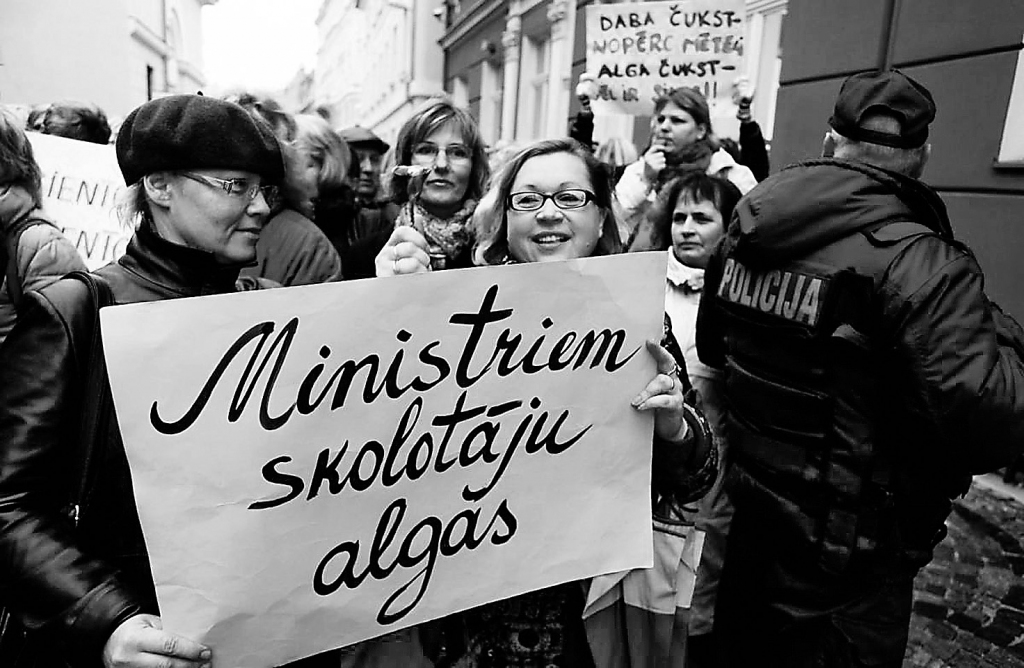 DABA ČUKST-
NOPĒRC MĒTELI
ALGA ČUKST-
IR
Ministriem
skolotāju
algās
POLICIJA